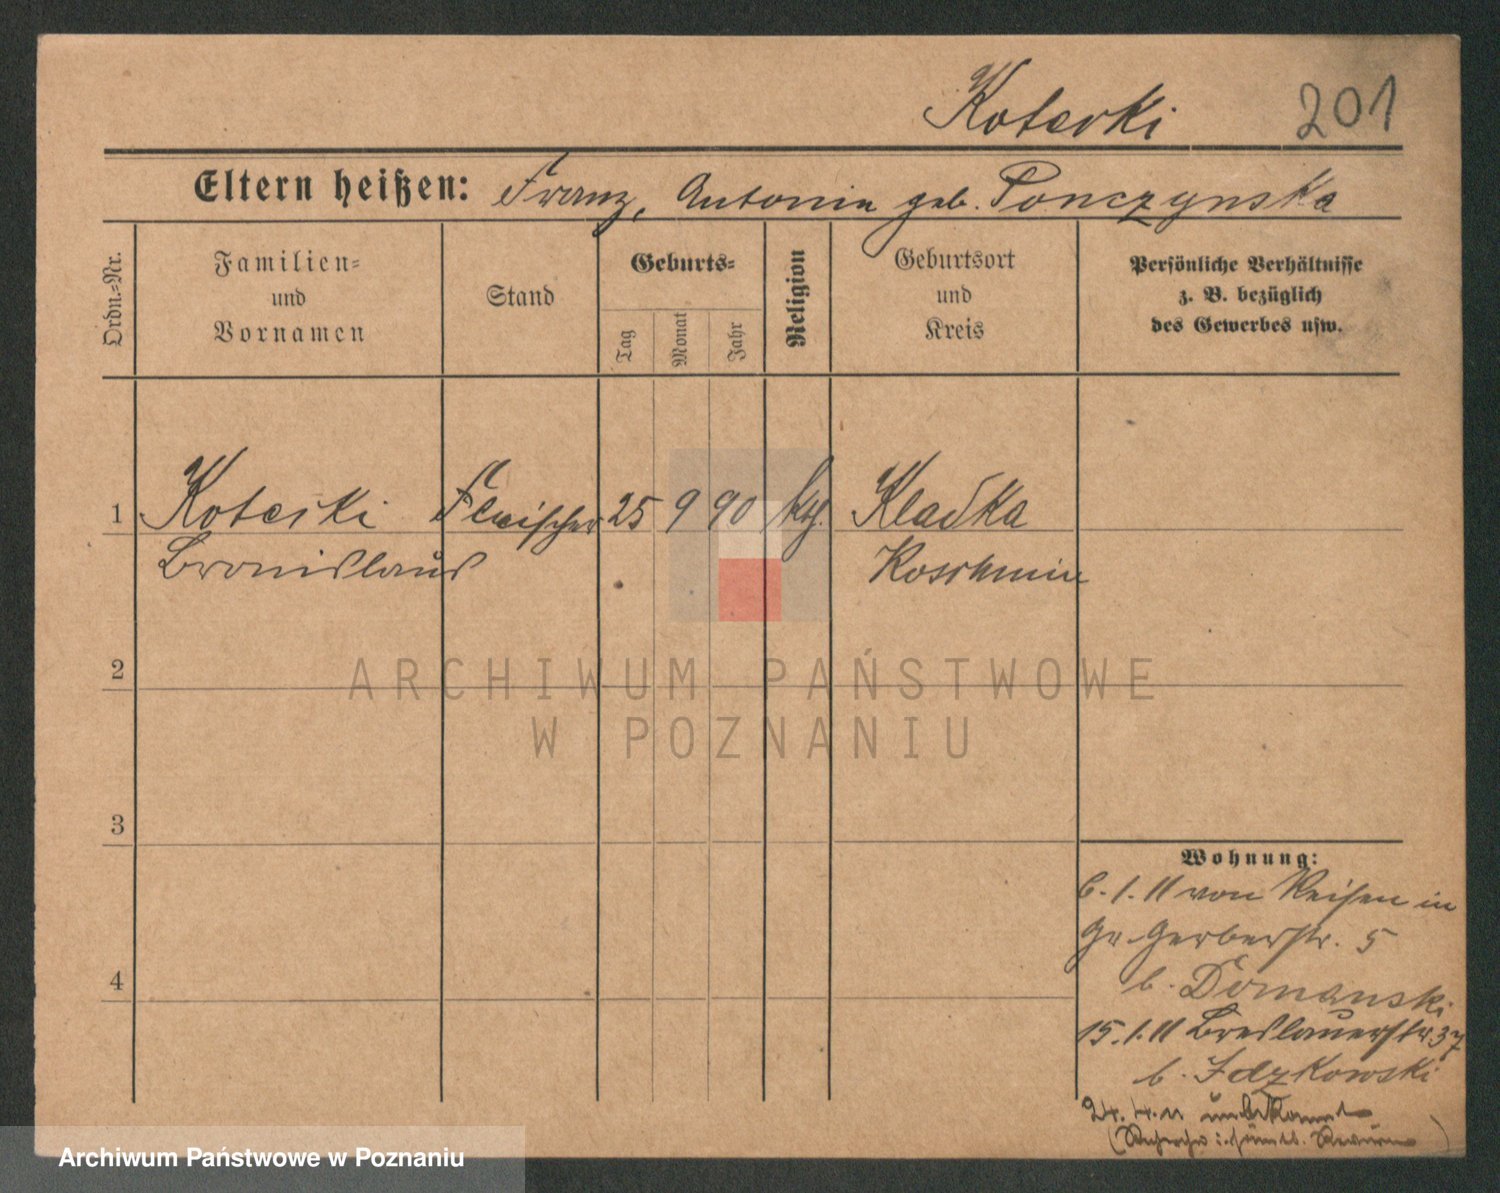 Koterki 201
Eltern heißen: Franz, Antonie geb. Ponczynska
Ordn.=Nr.
Familien=
und
Vornamen
Stand
Geburts=
Tag
Monat
Jahr
Religion
Geburtsort
und
Kreis
Persönliche Verhältnisse
z. B. bezüglich
des Gewerbes usw.
1 Koterki Fleischer 25 9 90 kth. Kladka
Bronislaus Koschmin
2
3
4
Wohnung:
6.1.11 von Reisen in
Gr. Gerberstr. 5
b. Domanski
15.1.11 Breslauerstr. 37
b. Idzkowski
24.4.11 unbekannt
ARCHIWUM PAŃSTWOWE
W POZNANIU
Archiwum Państwowe w Poznaniu